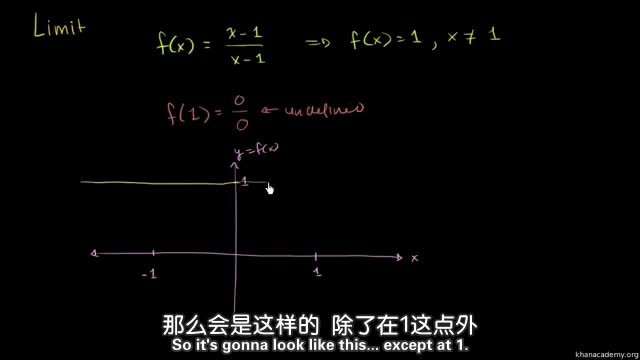 Limit
f(x) = x-1 / x-1 ⇒ f(x) = 1 , x ≠ 1
f(1) = 0 / 0 ← undefined
y=f(x)
1
x
-1
1
那么会是这样的 除了在1这点外
So it's gonna look like this... except at 1.
khanacademy.org